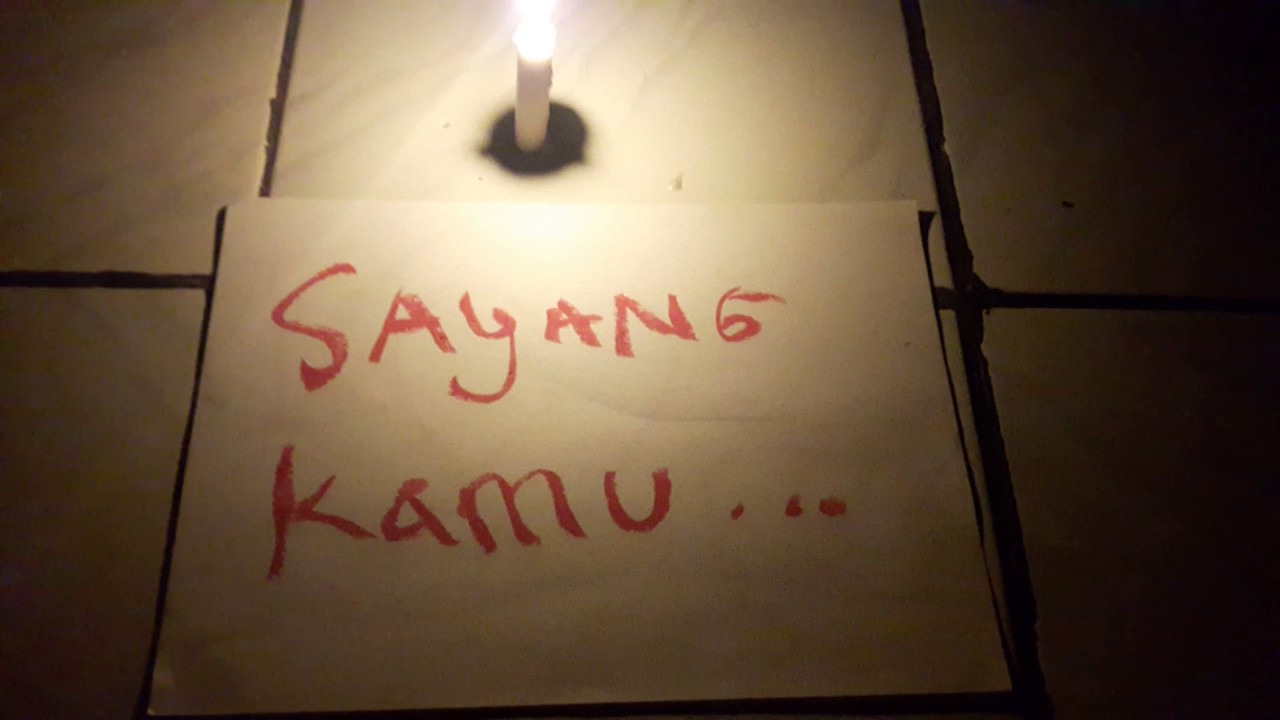 SAYANG
KAMU...